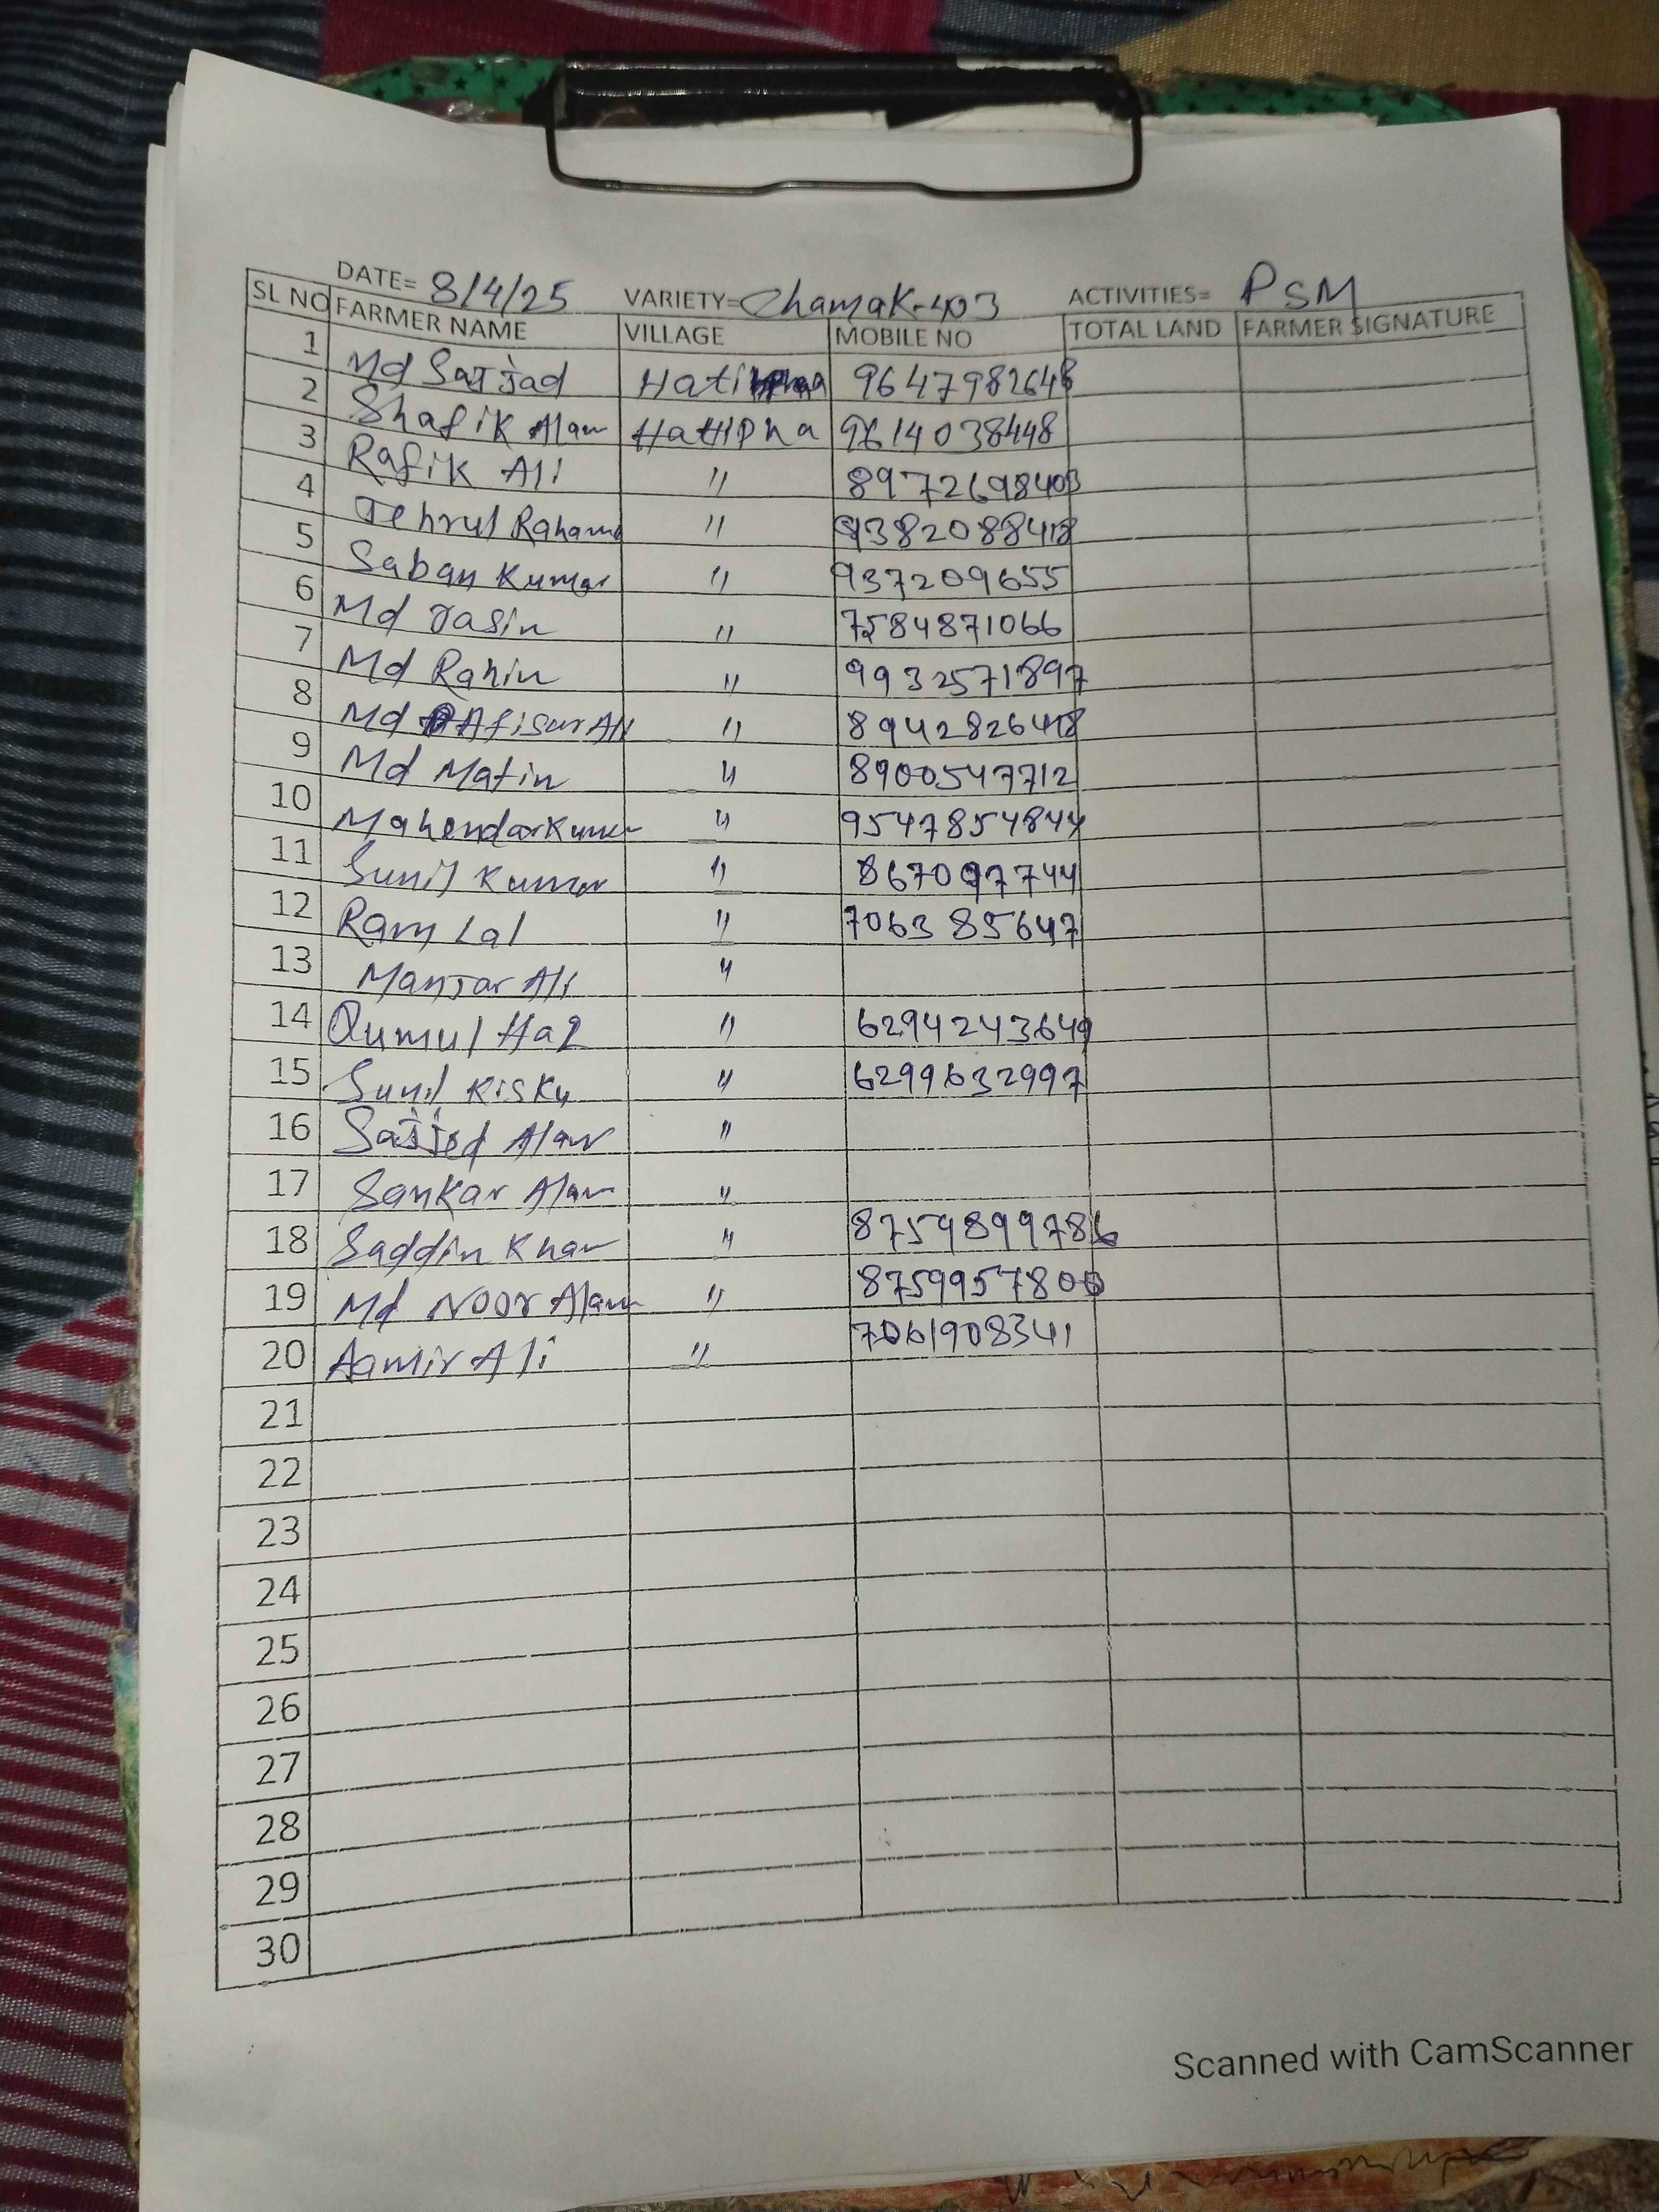 DATE= 8/4/25 VARIETY= Chamak-403 ACTIVITIES= PSM
SL NO FARMER NAME VILLAGE MOBILE NO TOTAL LAND FARMER SIGNATURE
1 Md Sajjad 9647982648
2 Shafik Alam Hatipha 9614038448
3 Rafik Ali " 8972698403
4 Jehrul "
5 Saban Kumar " 937209655
6 Md Yasin " 7584871066
7 Md Rahin " 9932571897
8 Md Afisur Ali "
9 Md Matin " 8900547712
10 Mahendar Kumar " 9547854844
11 Sunil Kumar " 867097744
12 Ram Lal " 706385647
13 Manjar Ali "
14 Qumul Haq " 6294243649
15 Sunil Kisku " 6299632997
16 Sajjed Alam "
17 Sankar Alam "
18 Saddin Khan " 8759899786
19 Md Noor Alam " 8759957800
20 Aamir Ali " 7061908341
21
22
23
24
25
26
27
28
29
30
Scanned with CamScanner